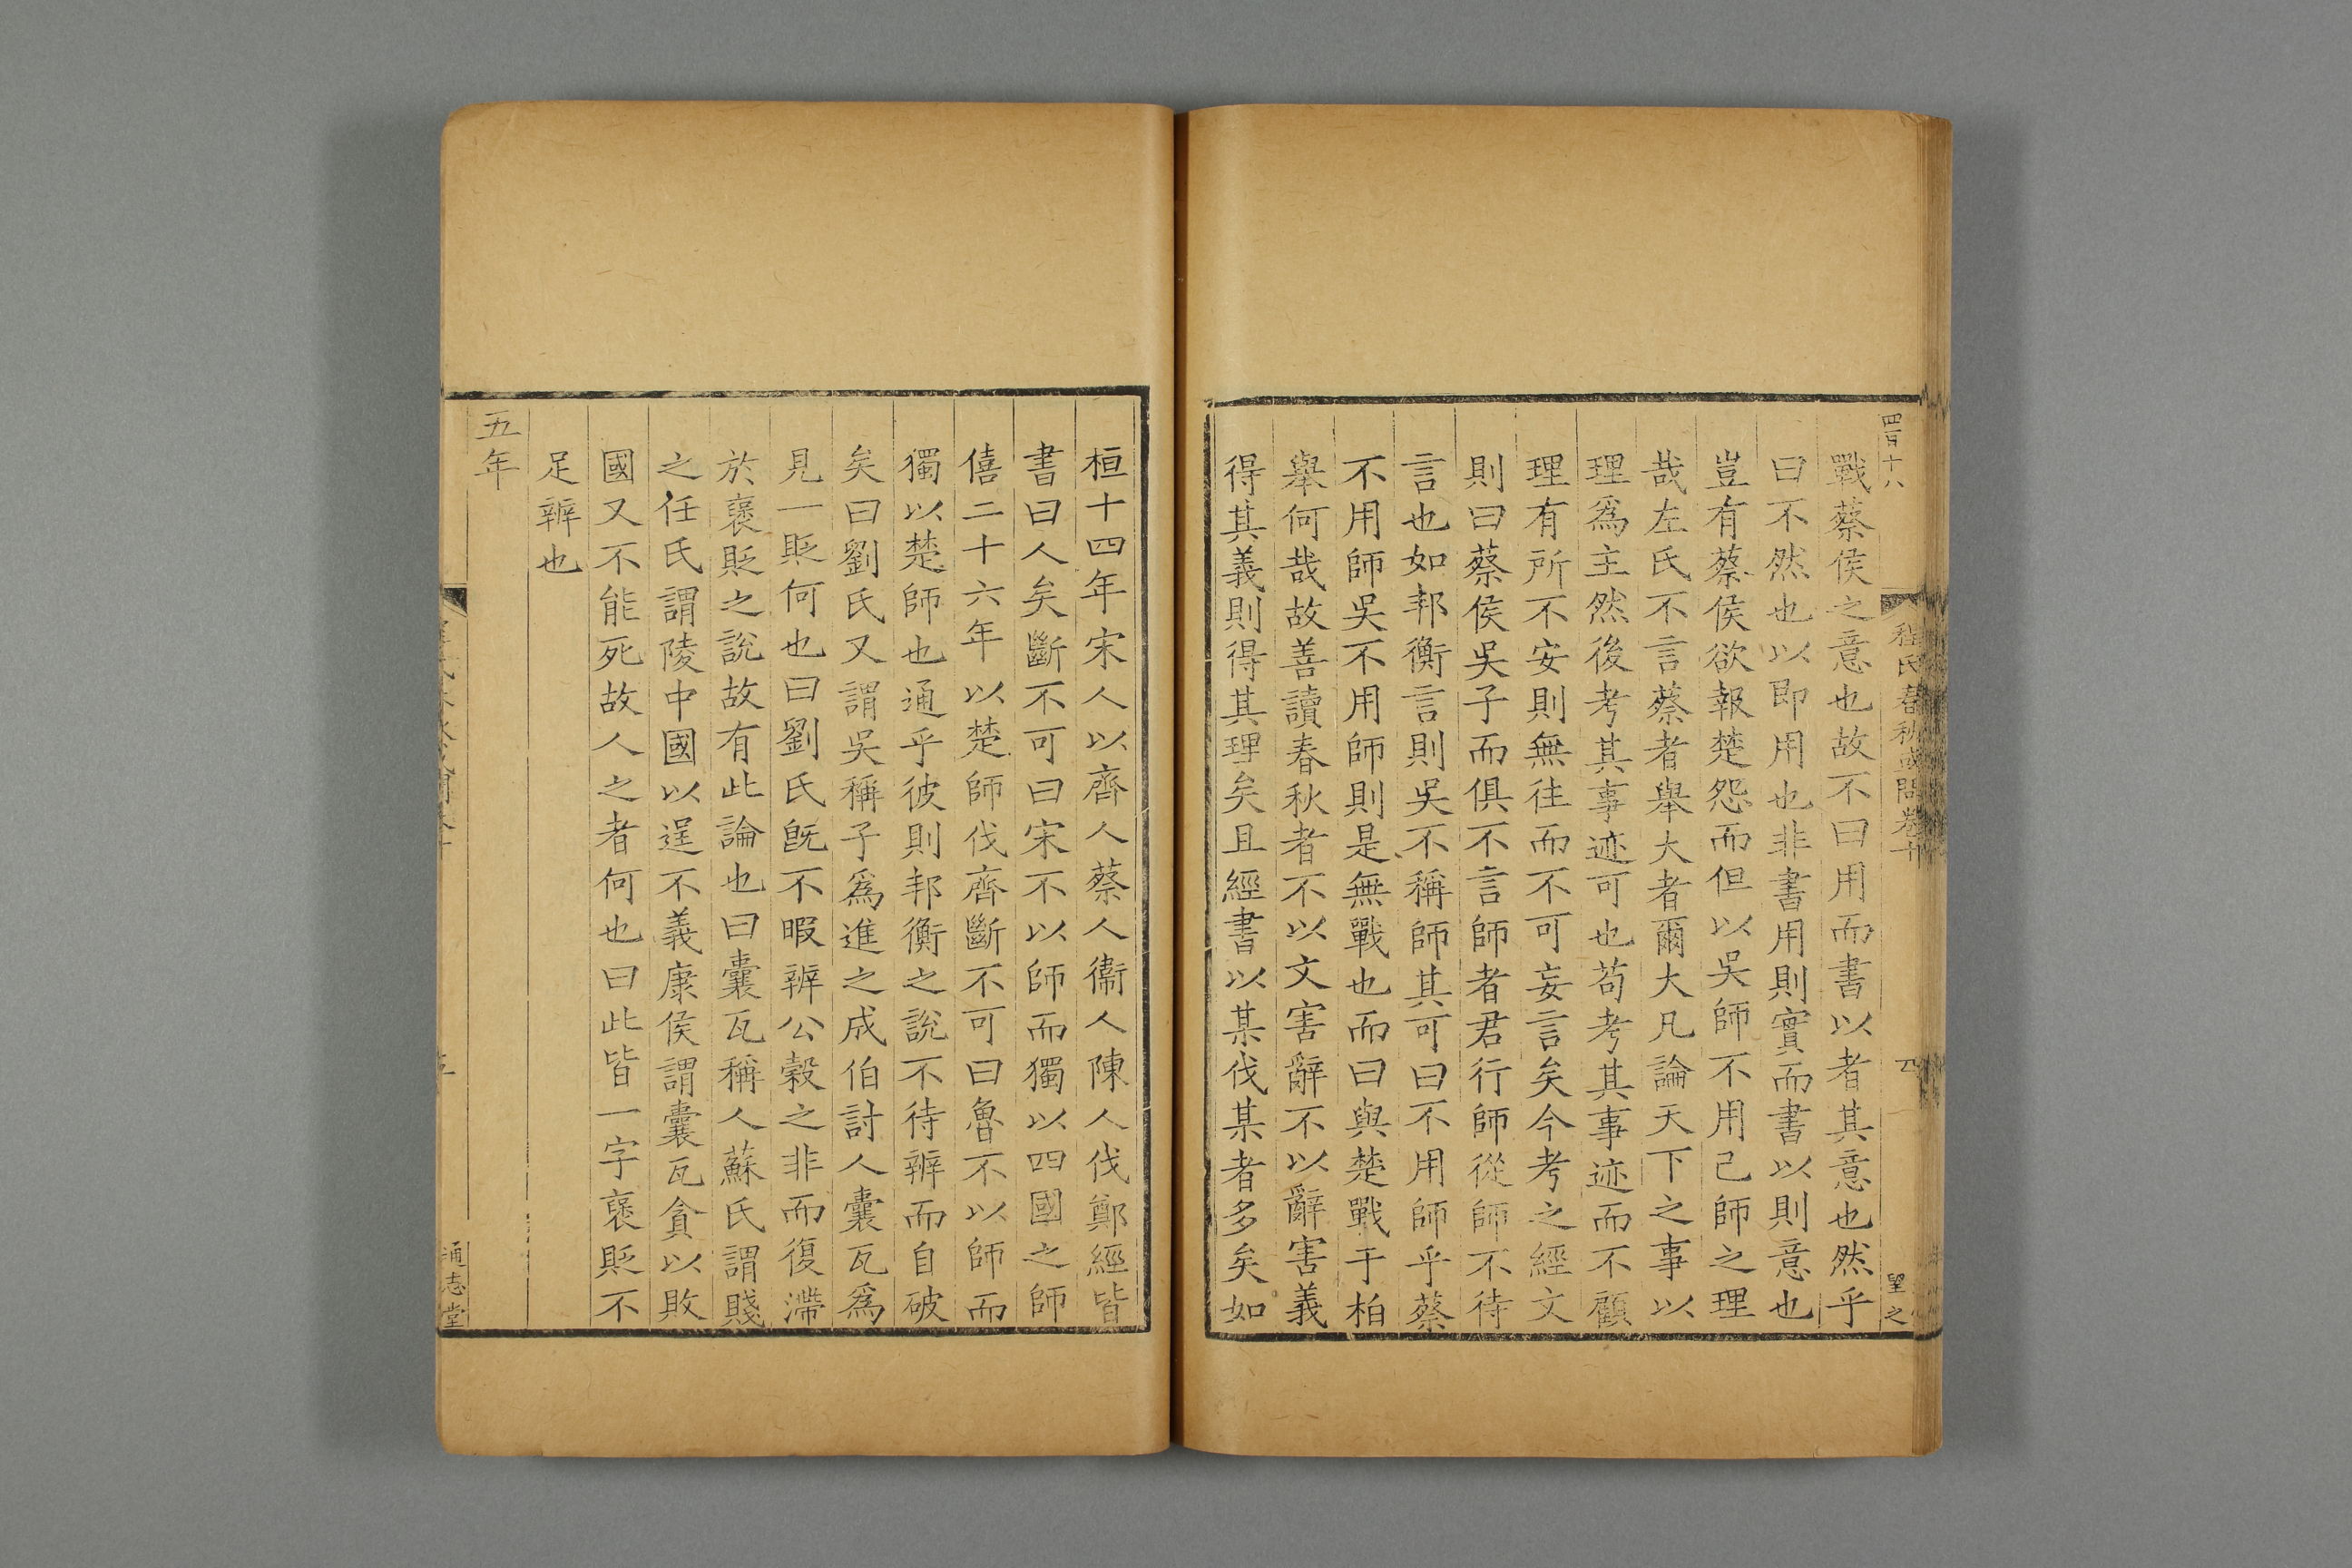 四百十八
程氏春秋或問卷十
望之
戰蔡侯之意也故不曰用而書以者其意也然乎
曰不然也以即用也非書用則實而書以則意也
豈有蔡侯欲報楚怨而但以吳師不用己師之理
哉左氏不言蔡者舉大者爾大凡論天下之事以
理爲主然後考其事迹可也苟考其事迹而不顧
理有所不安則無往而不可妄言矣今考之經文
則曰蔡侯吳子而俱不言師者君行師從師不待
言也如邦衡言則吳不稱師其可曰不用師乎蔡
不用師吳不用師則是無戰也而曰與楚戰于柏
舉何哉故善讀春秋者不以文害辭不以辭害義
得其義則得其理矣且經書以某伐某者多矣如
桓十四年宋人以齊人蔡人衞人陳人伐鄭經皆
書曰人矣斷不可曰宋不以師而獨以四國之師
僖二十六年以楚師伐齊斷不可曰魯不以師而
獨以楚師也通乎彼則邦衡之說不待辨而自破
矣曰劉氏又謂吳稱子爲進之成伯討人囊瓦爲
見一貶何也曰劉氏旣不暇辨公榖之非而復滯
於襃貶之說故有此論也曰囊瓦稱人蘇氏謂賤
之任氏謂陵中國以逞不義康侯謂囊瓦貪以敗
國又不能死故人之者何也曰此皆一字襃貶不
足辨也
五年
通志堂